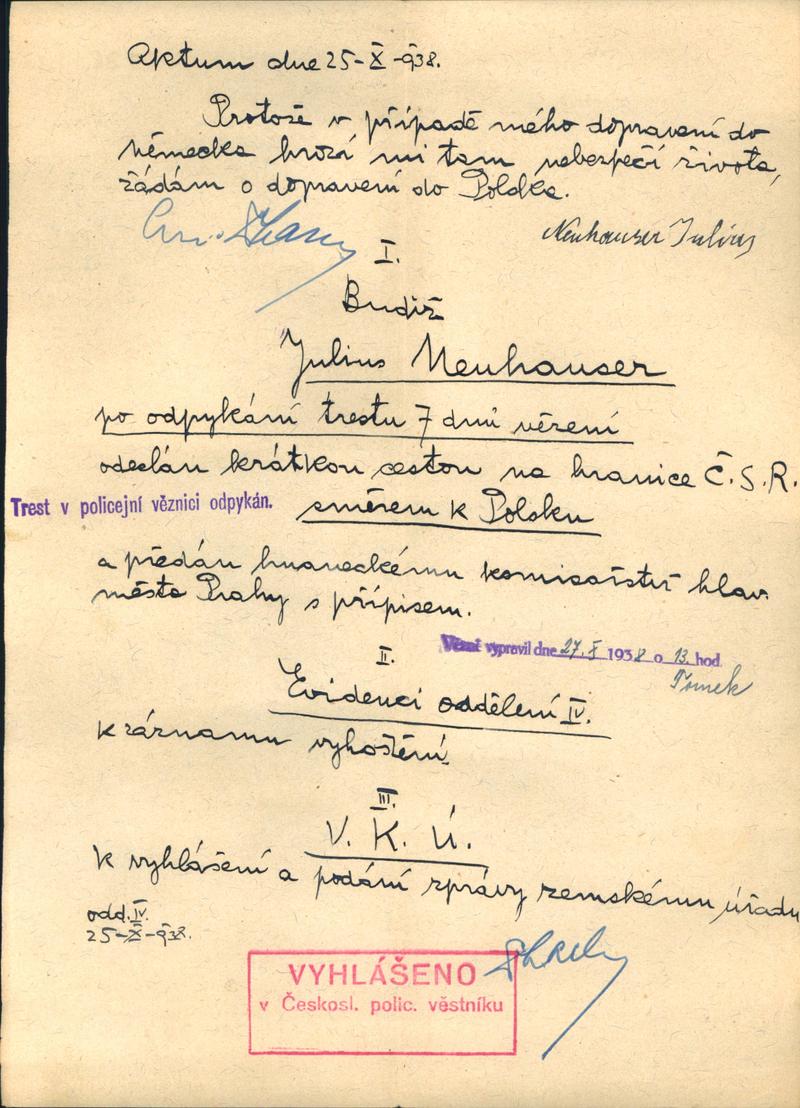 Aktum dne 25-X-938.
Protože v případě mého dopravení do
německa hrozí mi tam nebezpečí života,
žádám o dopravení do Polska.
Neuhauser Julius
I.
Budiž
Julius Neuhauser
po odpykání trestu 7 dnů vězení
odeslán krátkou cestou na hranice Č.S.R.
Trest v policejní věznici odpykán.
směrem k Polsku
a předán hraneckému komisařství hlav.
města Prahy s přípisem.
Vězně vypravil dne 27.X 1938 o 13. hod.
Tomek
II.
Evidenci oddělení IV.
k záznamu vyhoštění.
III.
V. K. Ú.
k vyhlášení a podání zprávy zemskému úřadu
odd. IV.
25-X-938.
VYHLÁŠENO
v Českosl. polic. věstníku